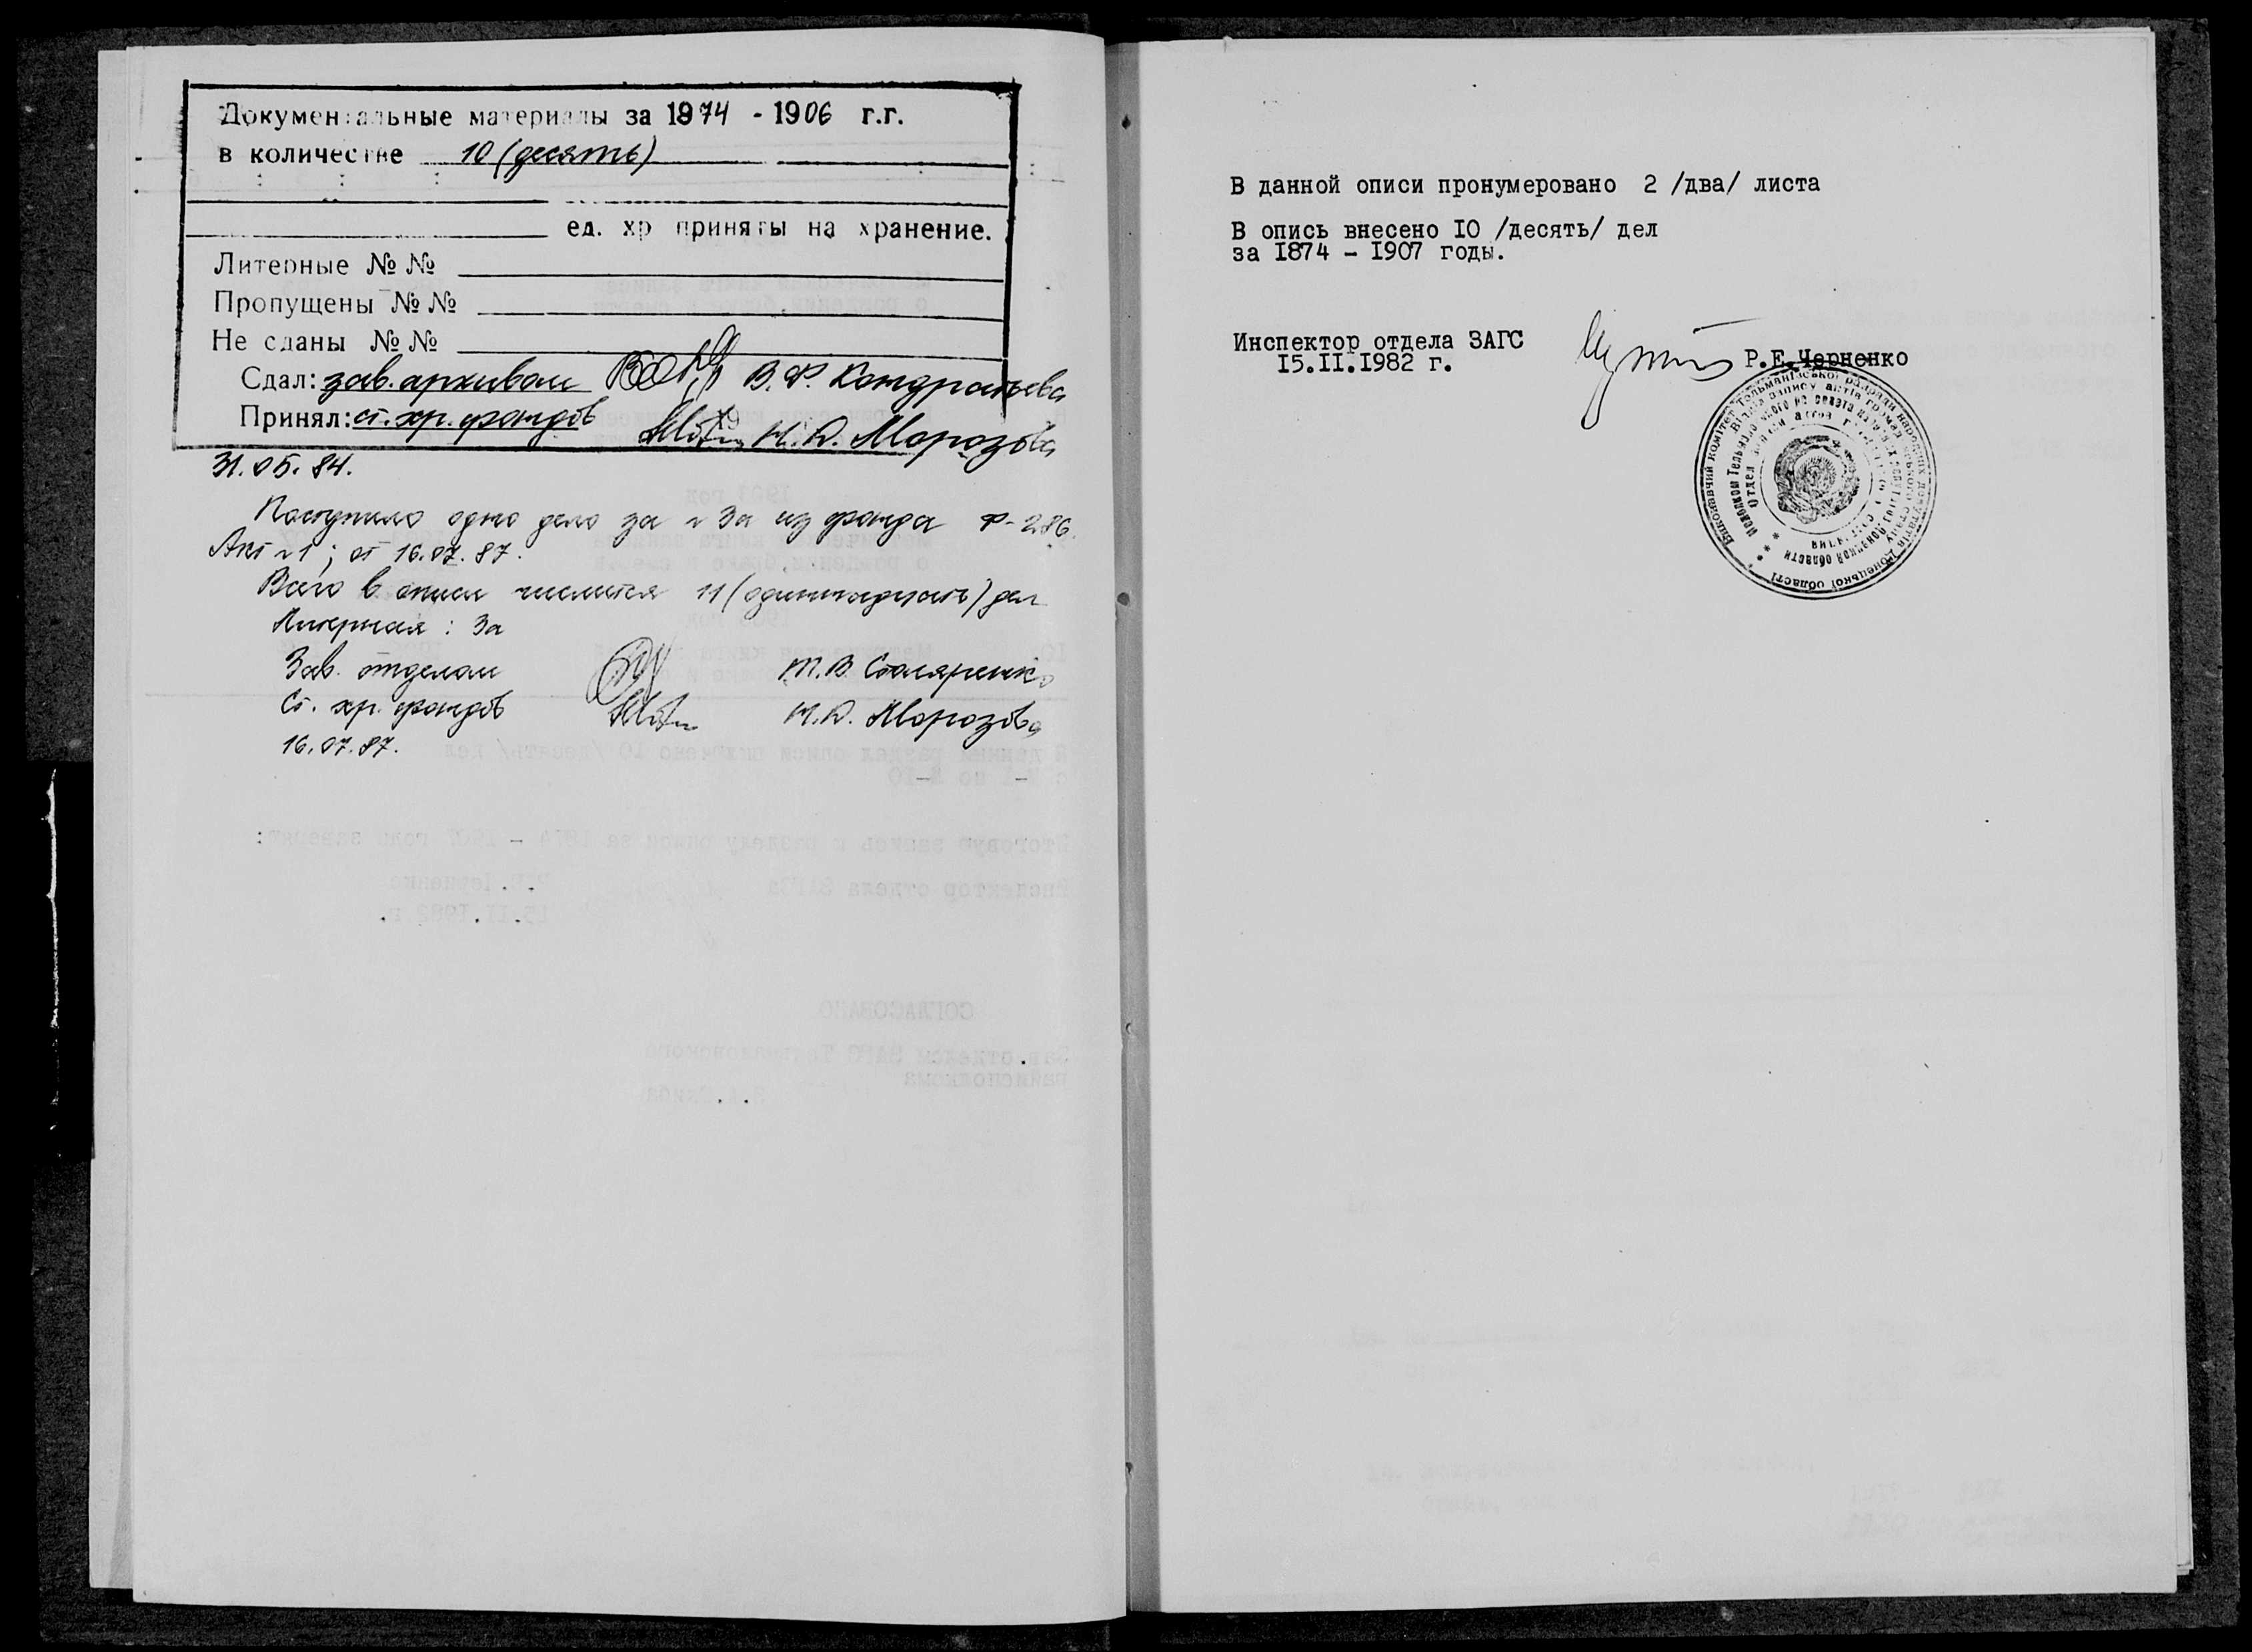 Документальные материалы за 1974 - 1906 г.г.
в количестве 10 (десять)
ед. хр приняты на хранение.
Литерные №№
Пропущены №№
Не сданы №№
Сдал: зав. архивом В.Ф. Кондратьева
Принял: ст. хр. фондов Н.D. Морозова
31.05.84.
Поступило одно дело за № 3а из фонда Ф-286.
Акт №1; от 16.07.87.
Всего в описи числится 11 (одиннадцать) дел
Литерная: 3а
Зав. отделом Т.В. Столяренко
Ст. хр. фондов Н.D. Морозова
16.07.87.
В данной описи пронумеровано 2 /два/ листа
В опись внесено IO /десять/ дел
за I874 - I907 годы.
Инспектор отдела ЗАГС Р.Е.Черненко
I5.II.I982 г.